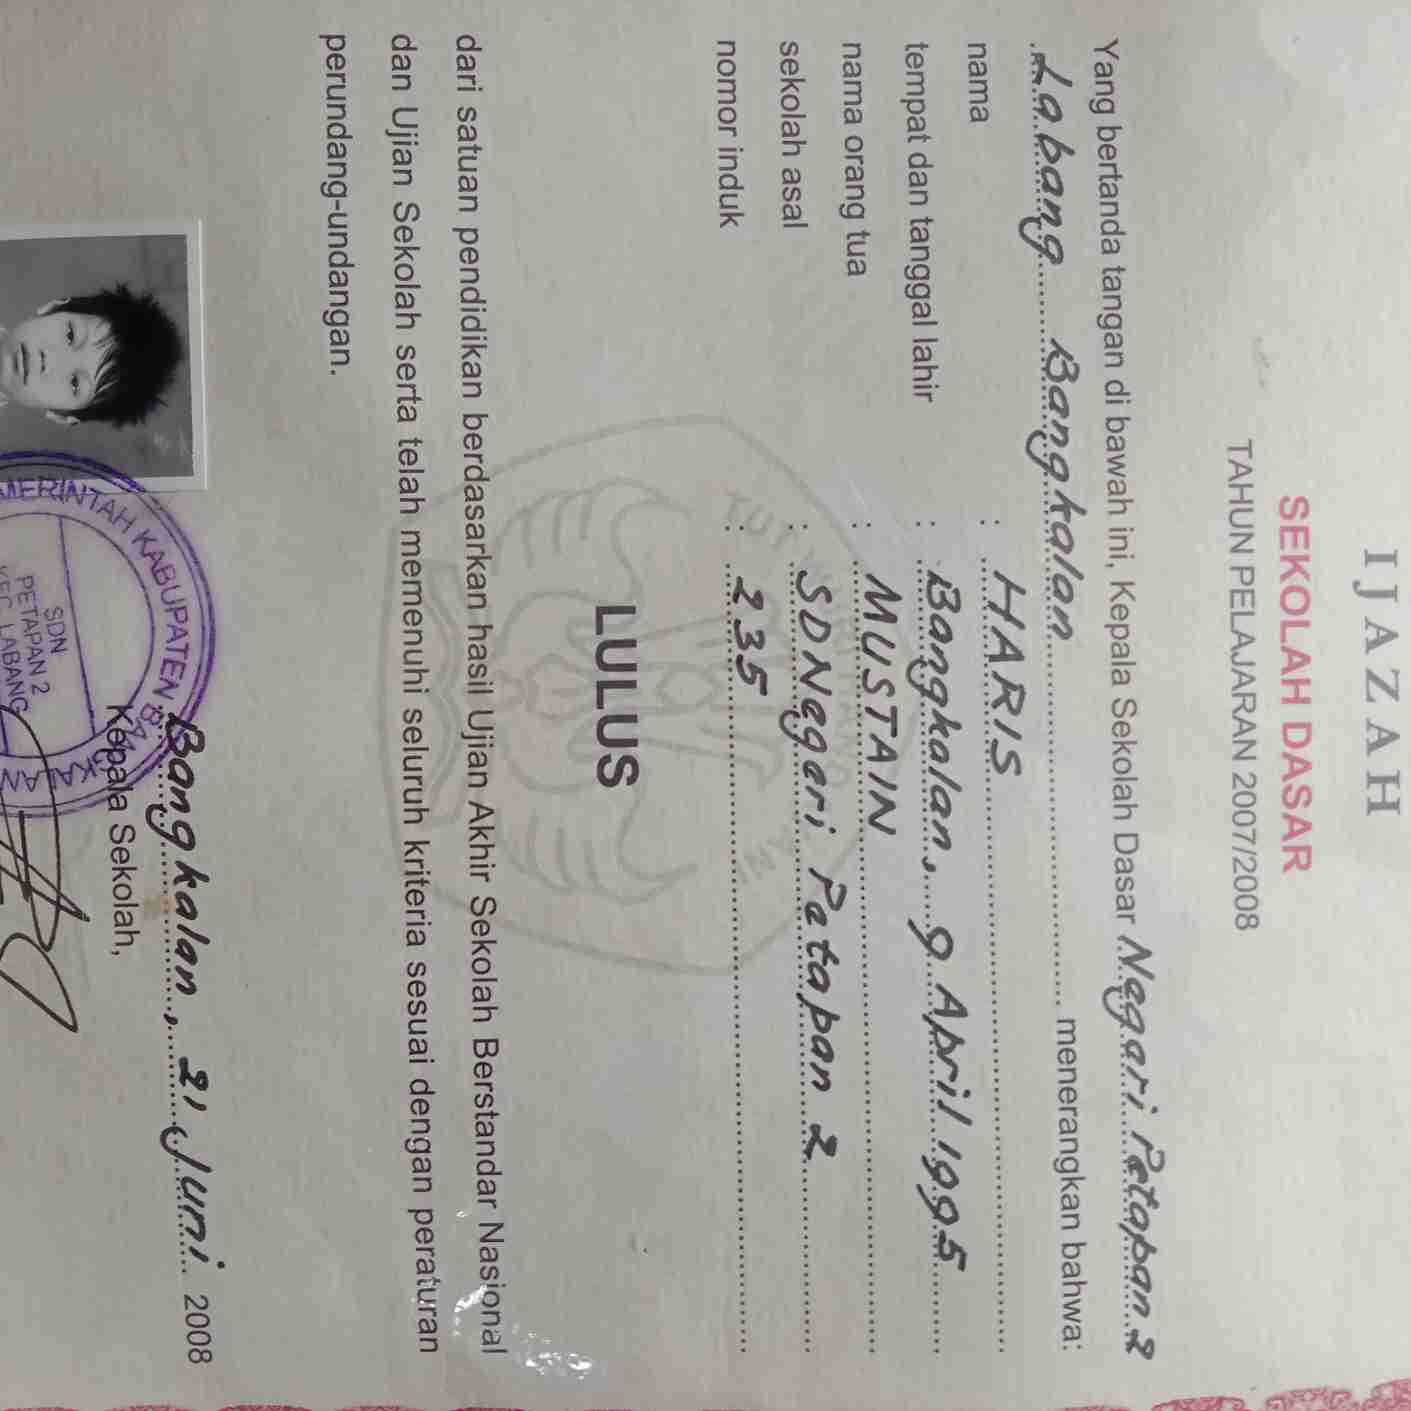 IJAZAH
SEKOLAH DASAR
TAHUN PELAJARAN 2007/2008
Yang bertanda tangan di bawah ini, Kepala Sekolah Dasar Neggeri Petapan 2
Labang Bangkalan menerangkan bahwa:
nama : HARIS
tempat dan tanggal lahir : Bangkalan, 9 April 1995
nama orang tua : MUSTAIN
sekolah asal : SDNeggeri Petapan 2
nomor induk : 235
TUT WURI
LULUS
dari satuan pendidikan berdasarkan hasil Ujian Akhir Sekolah Berstandar Nasional
dan Ujian Sekolah serta telah memenuhi seluruh kriteria sesuai dengan peraturan
perundang-undangan.
Bangkalan, 21 Juni 2008
Kepala Sekolah,
MERINTAH KABUPATEN
SDN
PETAPAN 2
KEC LABANG